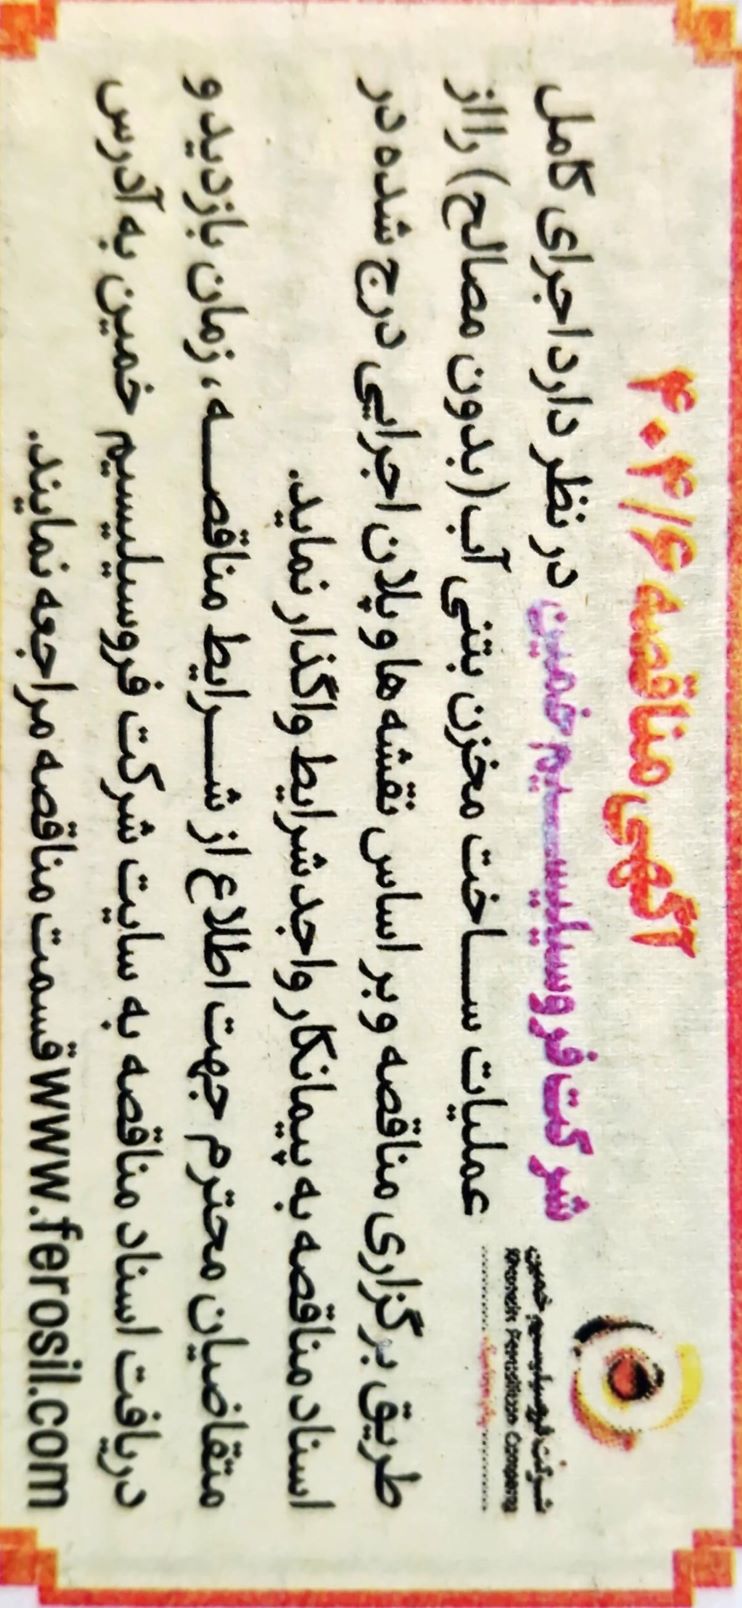 آگهی مناقصه ۴۰۴/۶
شرکت فروسیلیسیم خمین در نظر دارد اجرای کامل
عملیات ساخت مخزن بتنی آب (بدون مصالح) را از
طریق برگزاری مناقصه و بر اساس نقشه ها و پلان اجرایی درج شده در
اسناد مناقصه به پیمانکار واجد شرایط واگذار نماید.
متقاضیان محترم جهت اطلاع از شرایط مناقصه، زمان بازدید و
دریافت اسناد مناقصه به سایت شرکت فروسیلیسیم خمین به آدرس
www.ferosil.com قسمت مناقصه مراجعه نمایند.
شرکت فروسیلیسیم خمین
Company